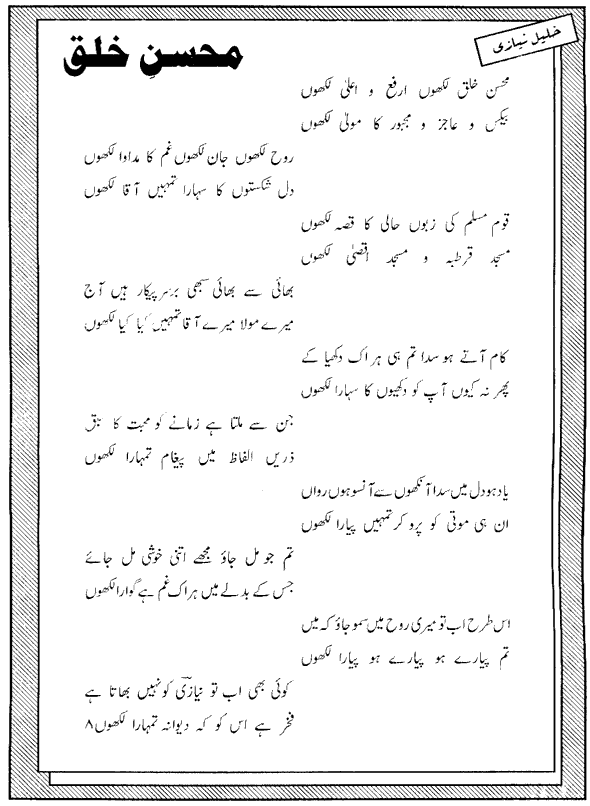 خلیل نیازی
محسنِ خلق
محسن خلق لکھوں ارفع و اعلیٰ لکھوں
بیکس و عاجز و مجبور کا مولیٰ لکھوں
روح لکھوں جان لکھوں غم کا مداوا لکھوں
دل شکستوں کا سہارا تمہیں آقا لکھوں
قوم مسلم کی زبوں حالی کا قصہ لکھوں
مسجد قرطبہ و مسجد اقصیٰ لکھوں
بھائی سے بھائی سبھی برسرپیکار ہیں آج
میرے مولا میرے آقا تمہیں کیا کیا لکھوں
کام آتے ہو سدا تم ہی ہر اک دکھیا کے
پھر نہ کیوں آپ کو دکھیوں کا سہارا لکھوں
جن سے ملتا ہے زمانے کو محبت کا سبق
ذریں الفاظ میں پیغام تمہارا لکھوں
یاد ہو دل میں سدا آنکھوں سے آنسو ہوں رواں
ان ہی موتی کو پرو کر تمہیں پیارا لکھوں
تم جو مل جاؤ مجھے اتنی خوشی مل جائے
جس کے بدلے میں ہر اک غم ہے گوارا لکھوں
اس طرح اب تو میری روح میں سمو جاؤ کہ میں
تم پیارے ہو پیارے ہو پیارا لکھوں
کوئی بھی اب تو نیازیؔ کو نہیں بھاتا ہے
فخر ہے اس کو کہ دیوانہ تمہارا لکھوں ۸